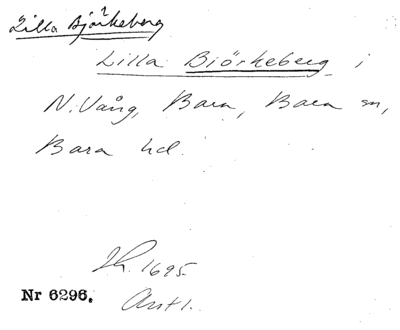 Lilla Björkeberg
Lilla Biörkeberg i
N. Vång, Bara, Bara sn,
Bara hd.
Jb. 1695.
Nr 6296. Avst.